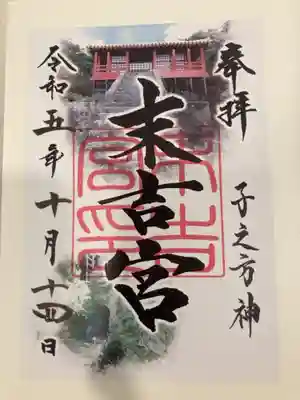 奉拝
子之方神
末吉宮
末吉宮印
令和五年十月十四日